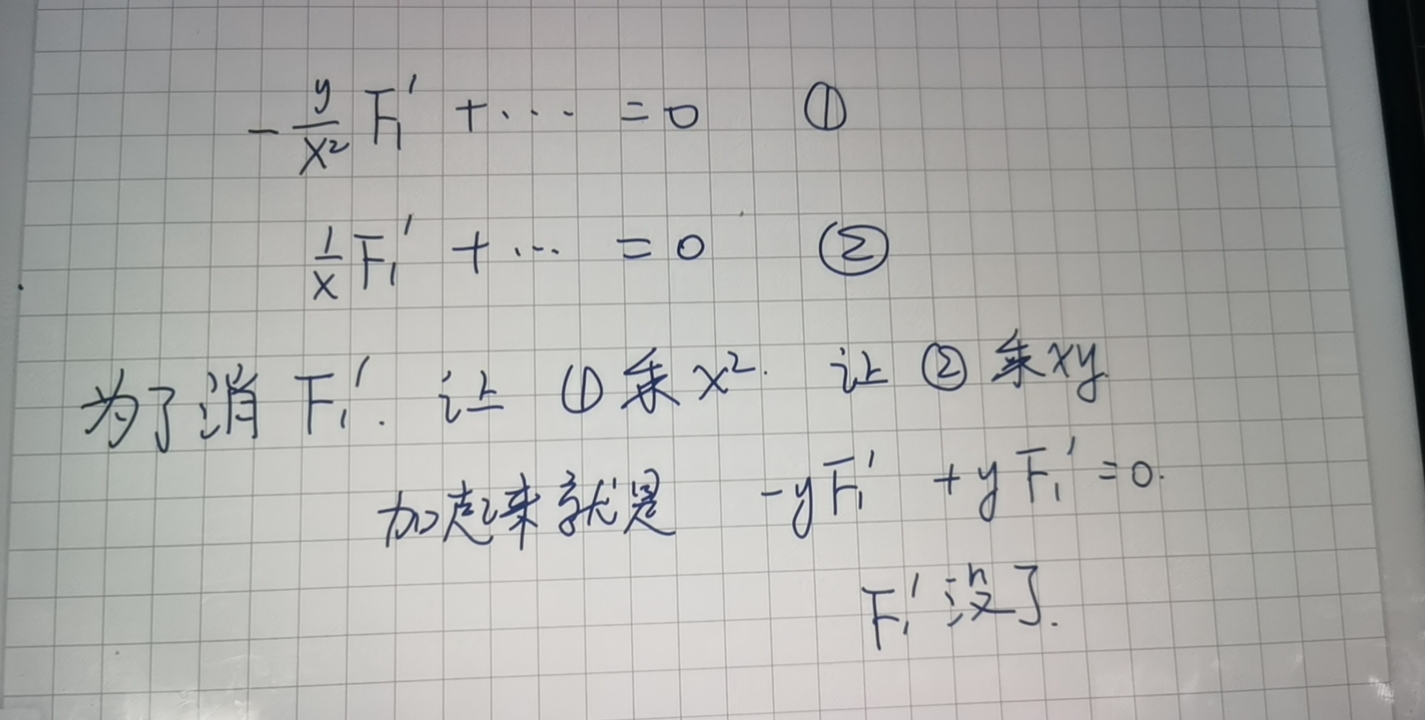 -y/x² F₁′ + ··· = 0 ①
1/x F₁′ + ··· = 0 ②
为了消 F₁′. 让 ①乘x². 让 ②乘xy.
加起来就是 -yF₁′ +yF₁′=0.
F₁′没了.